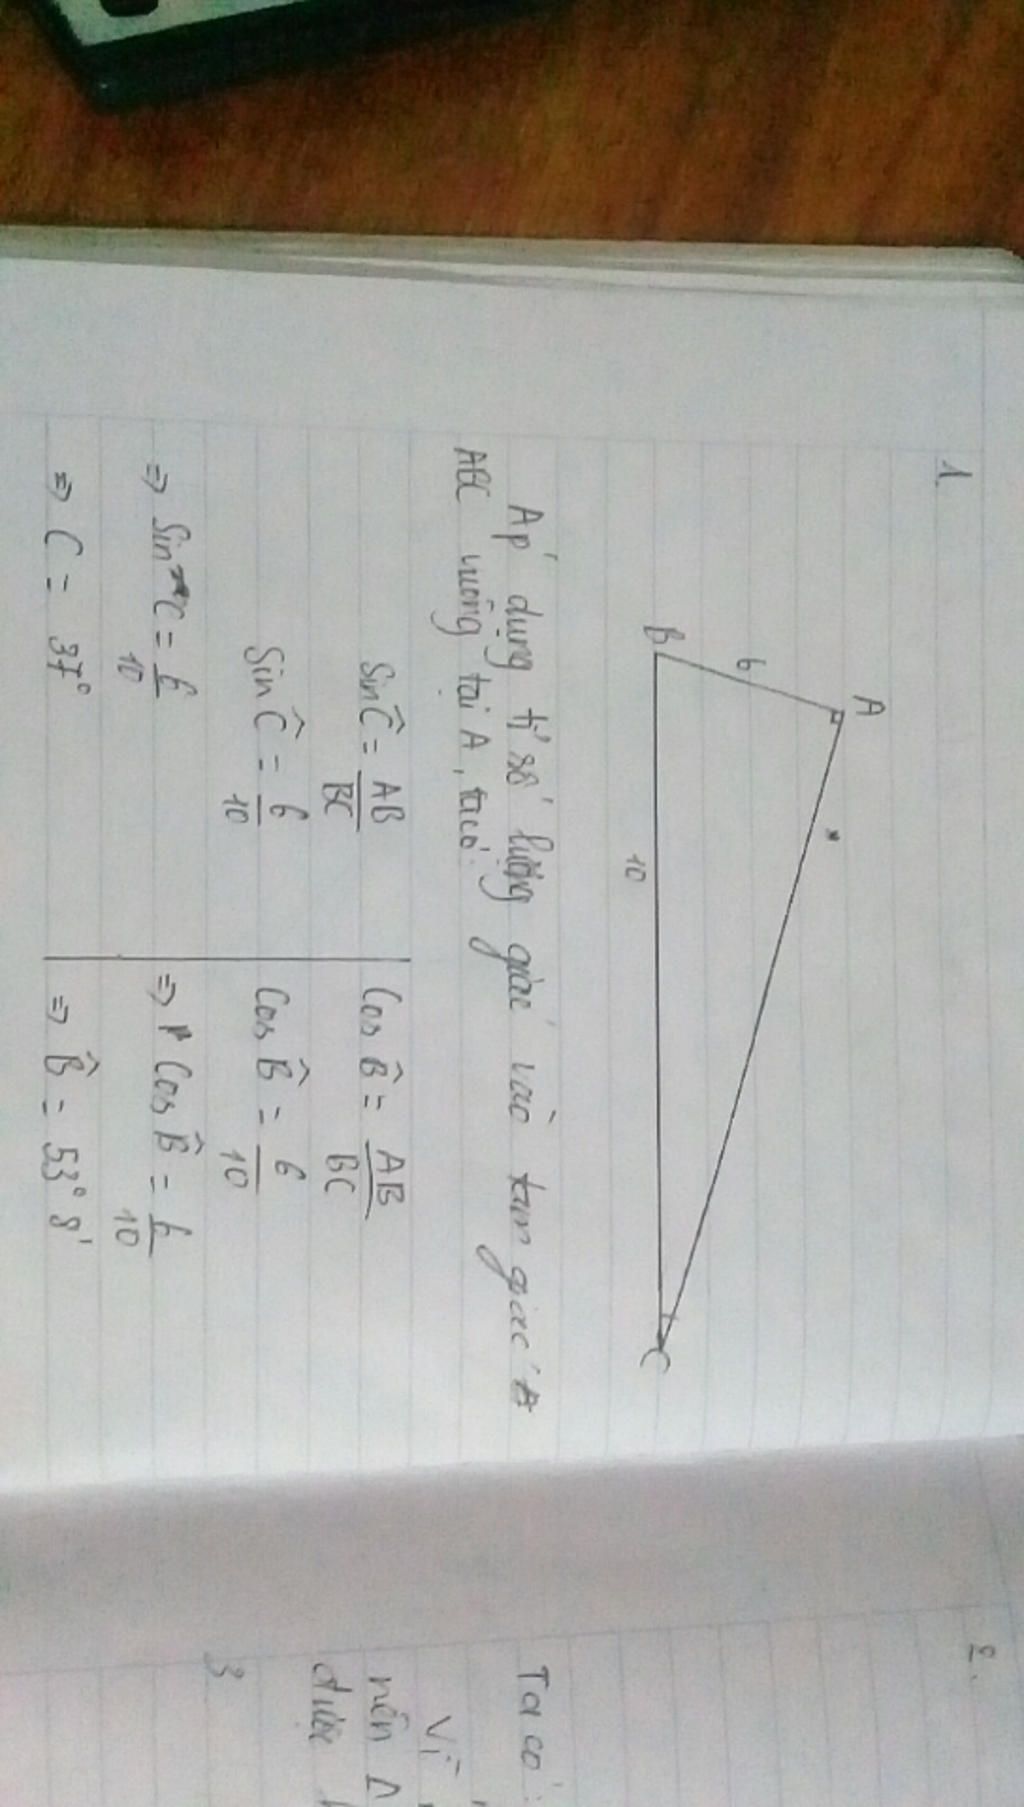 1.
A
6
B
10
C
Áp dụng tỉ số lượng giác vào tam giác
ABC vuông tại A, ta có:
Sin Ĉ = AB/BC
Sin Ĉ = 6/10
=> Sin C = 6/10
=> C = 37°
Cos B̂ = AB/BC
Cos B̂ = 6/10
=> Cos B̂ = 6/10
=> B̂ = 53° 8'
2.
Ta có:
Vì
nên Δ
được
3